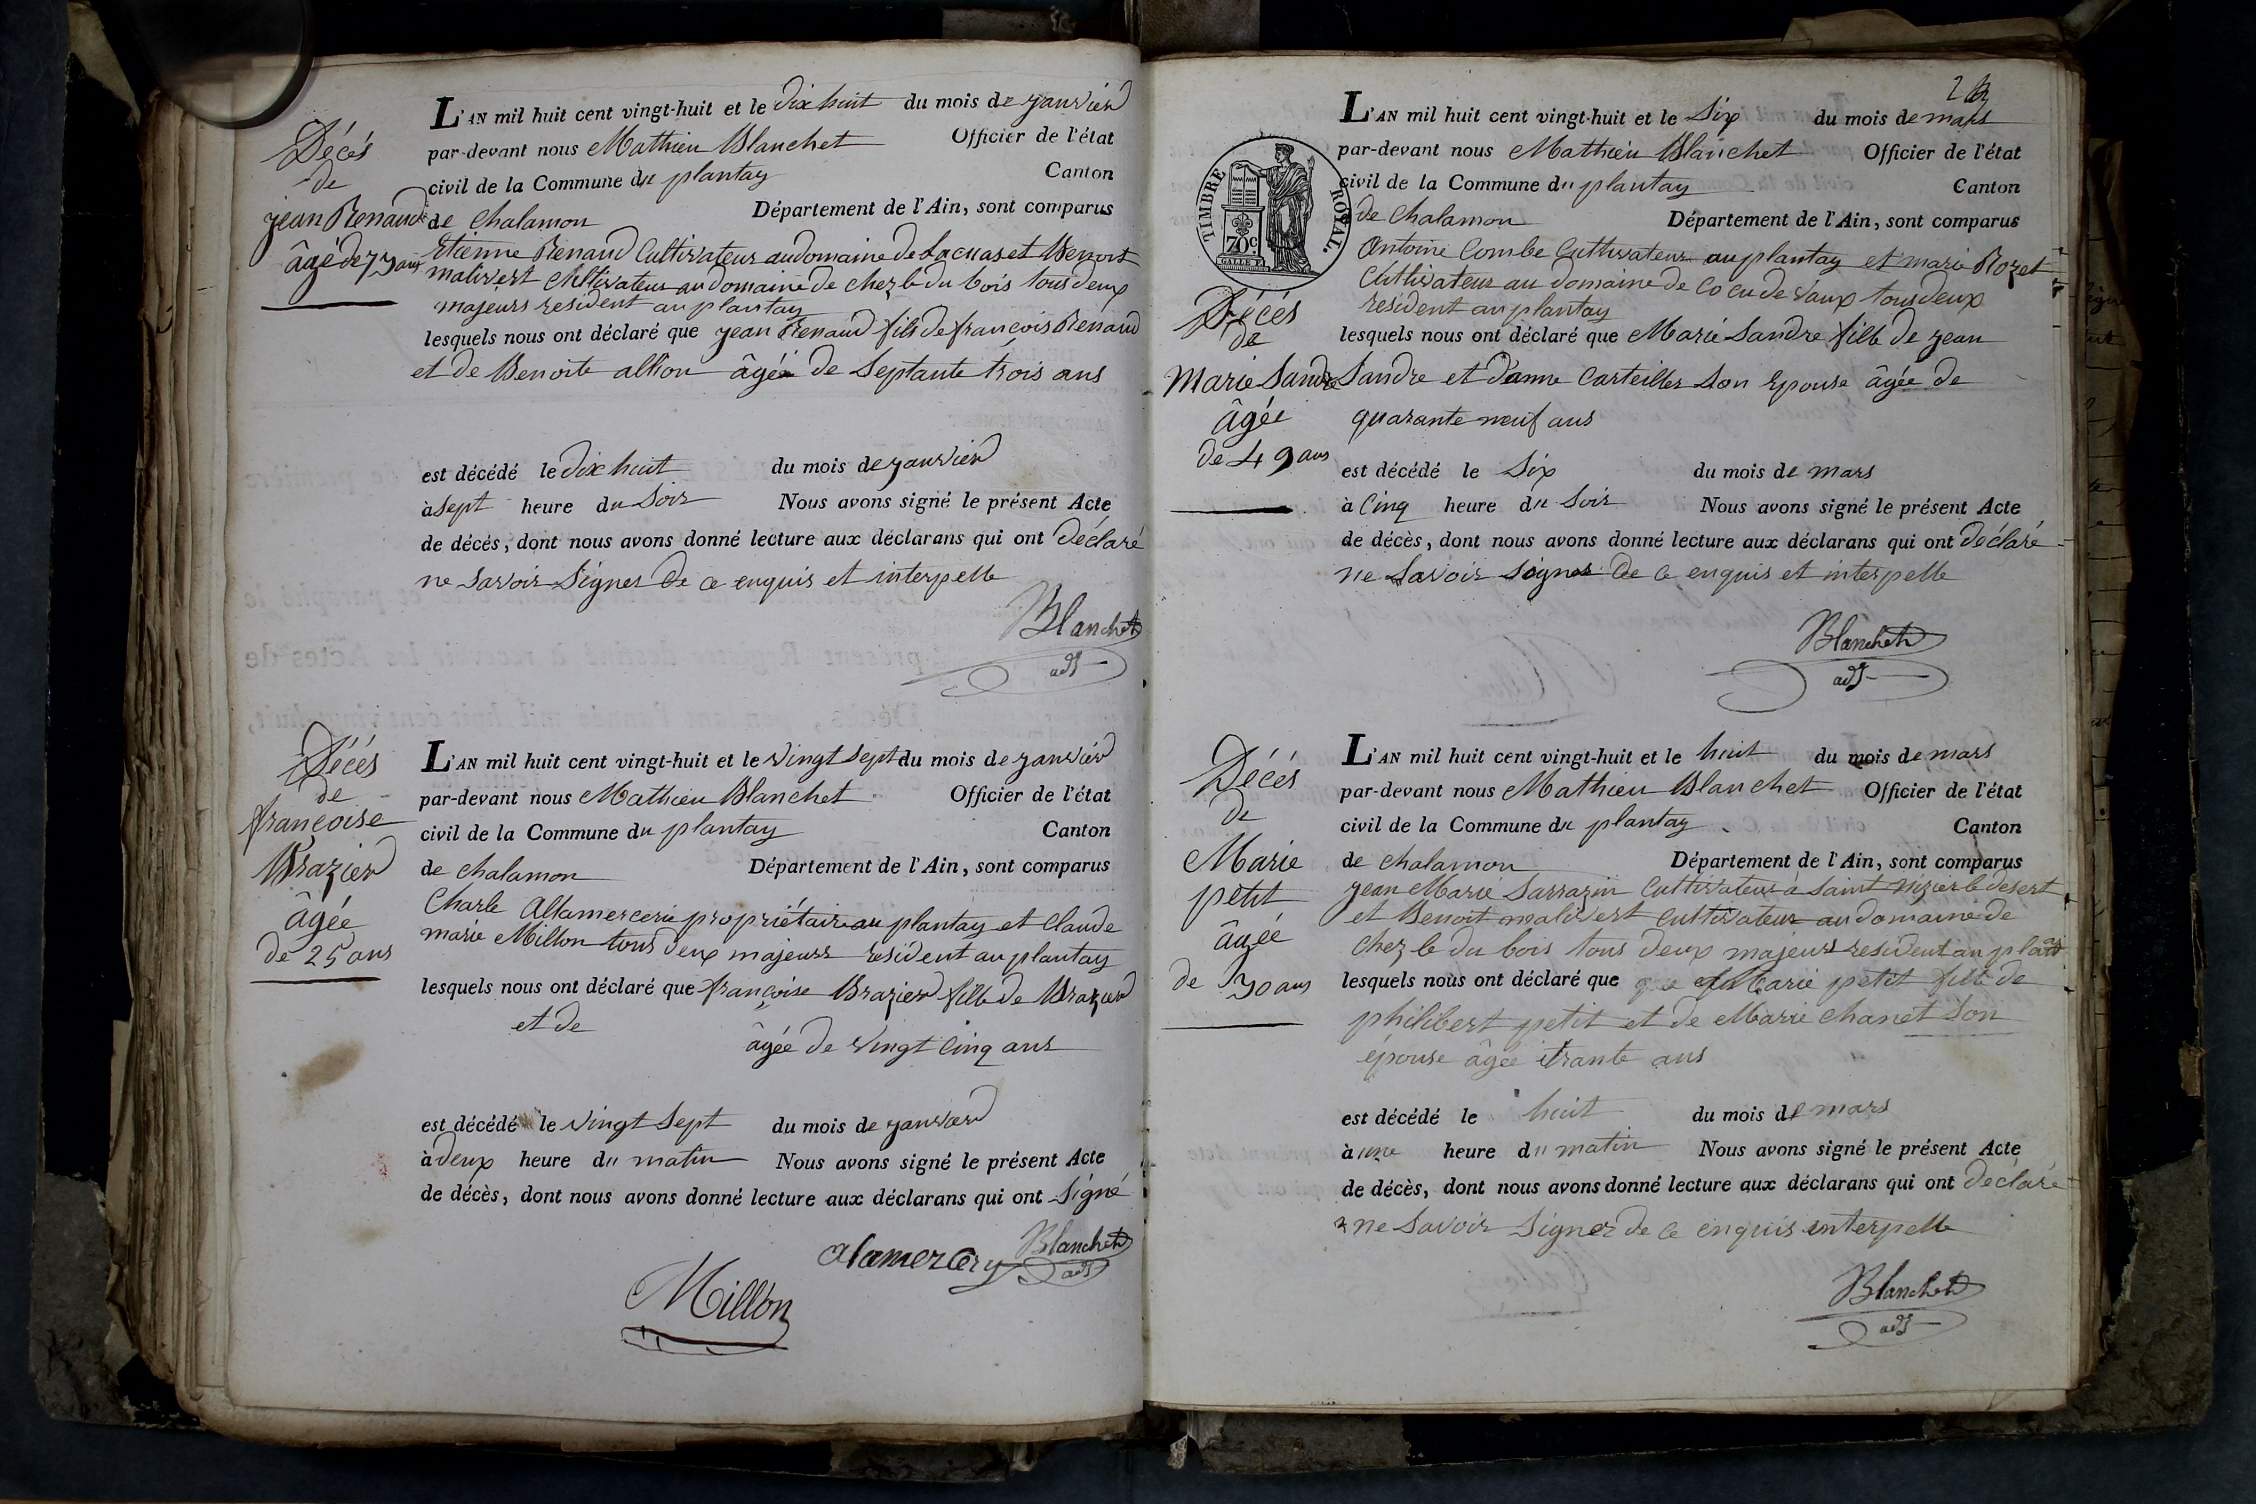 Décés
de
jean Renaud
âgé de 73 ans
L'AN mil huit cent vingt-huit et le dix huit du mois de janvier
par-devant nous Mathieu Blanchet Officier de l'état
civil de la Commune du plantay Canton
de chalamon Département de l'Ain, sont comparus
Etienne Renaud Cultivateur au domaine de Lacuas et Benoit
malivert Cultivateur au domaine de chez le du bois tous deux
majeurs resident au plantay
lesquels nous ont déclaré que jean Renaud fils de françois Renaud
et de Benoite allion âgé de Septante trois ans
est décédé le dix huit du mois de janvier
à sept heure du Soir Nous avons signé le présent Acte
de décès, dont nous avons donné lecture aux déclarans qui ont déclaré
ne Savoir Signer de ce enquis et interpelle
Blanchet
adj
Décés
de
françoise
Brazier
âgée
de 25 ans
L'AN mil huit cent vingt-huit et le vingt sept du mois de janvier
par-devant nous Mathieu Blanchet Officier de l'état
civil de la Commune du plantay Canton
de chalamon Département de l'Ain, sont comparus
Charle Allamercerie propriétaire au plantay et Claude
marie Millon tous deux majeurs resident au plantay
lesquels nous ont déclaré que françoise Brazier fille de Brazier
et de
âgée de vingt Cinq ans
est décédé le vingt Sept du mois de janvier
à deux heure du matin Nous avons signé le présent Acte
de décès, dont nous avons donné lecture aux déclarans qui ont Signé
alamercery Blanchet
adj
Millon
23
TIMBRE ROYAL.
70c
Décés
de
Marie Sandre
âgée
de 49 ans
L'AN mil huit cent vingt-huit et le Six du mois de mars
par-devant nous Mathieu Blanchet Officier de l'état
civil de la Commune du plantay Canton
de Chalamon Département de l'Ain, sont comparus
Antoine Combe Cultivateur au plantay et marie Rozet
Cultivateur au domaine de Cocu de vaux tous deux
resident au plantay
lesquels nous ont déclaré que Marie Sandre fille de jean
Sandre et d'anne Carteiller Son Epouse âgée de
quarante neuf ans
est décédé le Six du mois de mars
à Cinq heure du Soir Nous avons signé le présent Acte
de décès, dont nous avons donné lecture aux déclarans qui ont déclaré
ne Savoir Signer de ce enquis et interpelle
Blanchet
adj
Décés
de
Marie
petit
âgée
de 30 ans
L'AN mil huit cent vingt-huit et le huit du mois de mars
par-devant nous Mathieu Blanchet Officier de l'état
civil de la Commune du plantay Canton
de chalamon Département de l'Ain, sont comparus
jean Marie Sarrazin Cultivateur à Saint Nizier le desert
et Benoit malivert Cultivateur au domaine de
chez le du bois tous deux majeurs resident au
lesquels nous ont déclaré que que Marie petit fille de
philibert petit et de Marie Chanet Son
épouse âgée trante ans
est décédé le huit du mois de mars
à une heure du matin Nous avons signé le présent Acte
de décès, dont nous avons donné lecture aux déclarans qui ont déclaré
ne Savoir Signer de ce enquis interpelle
Blanchet
adj